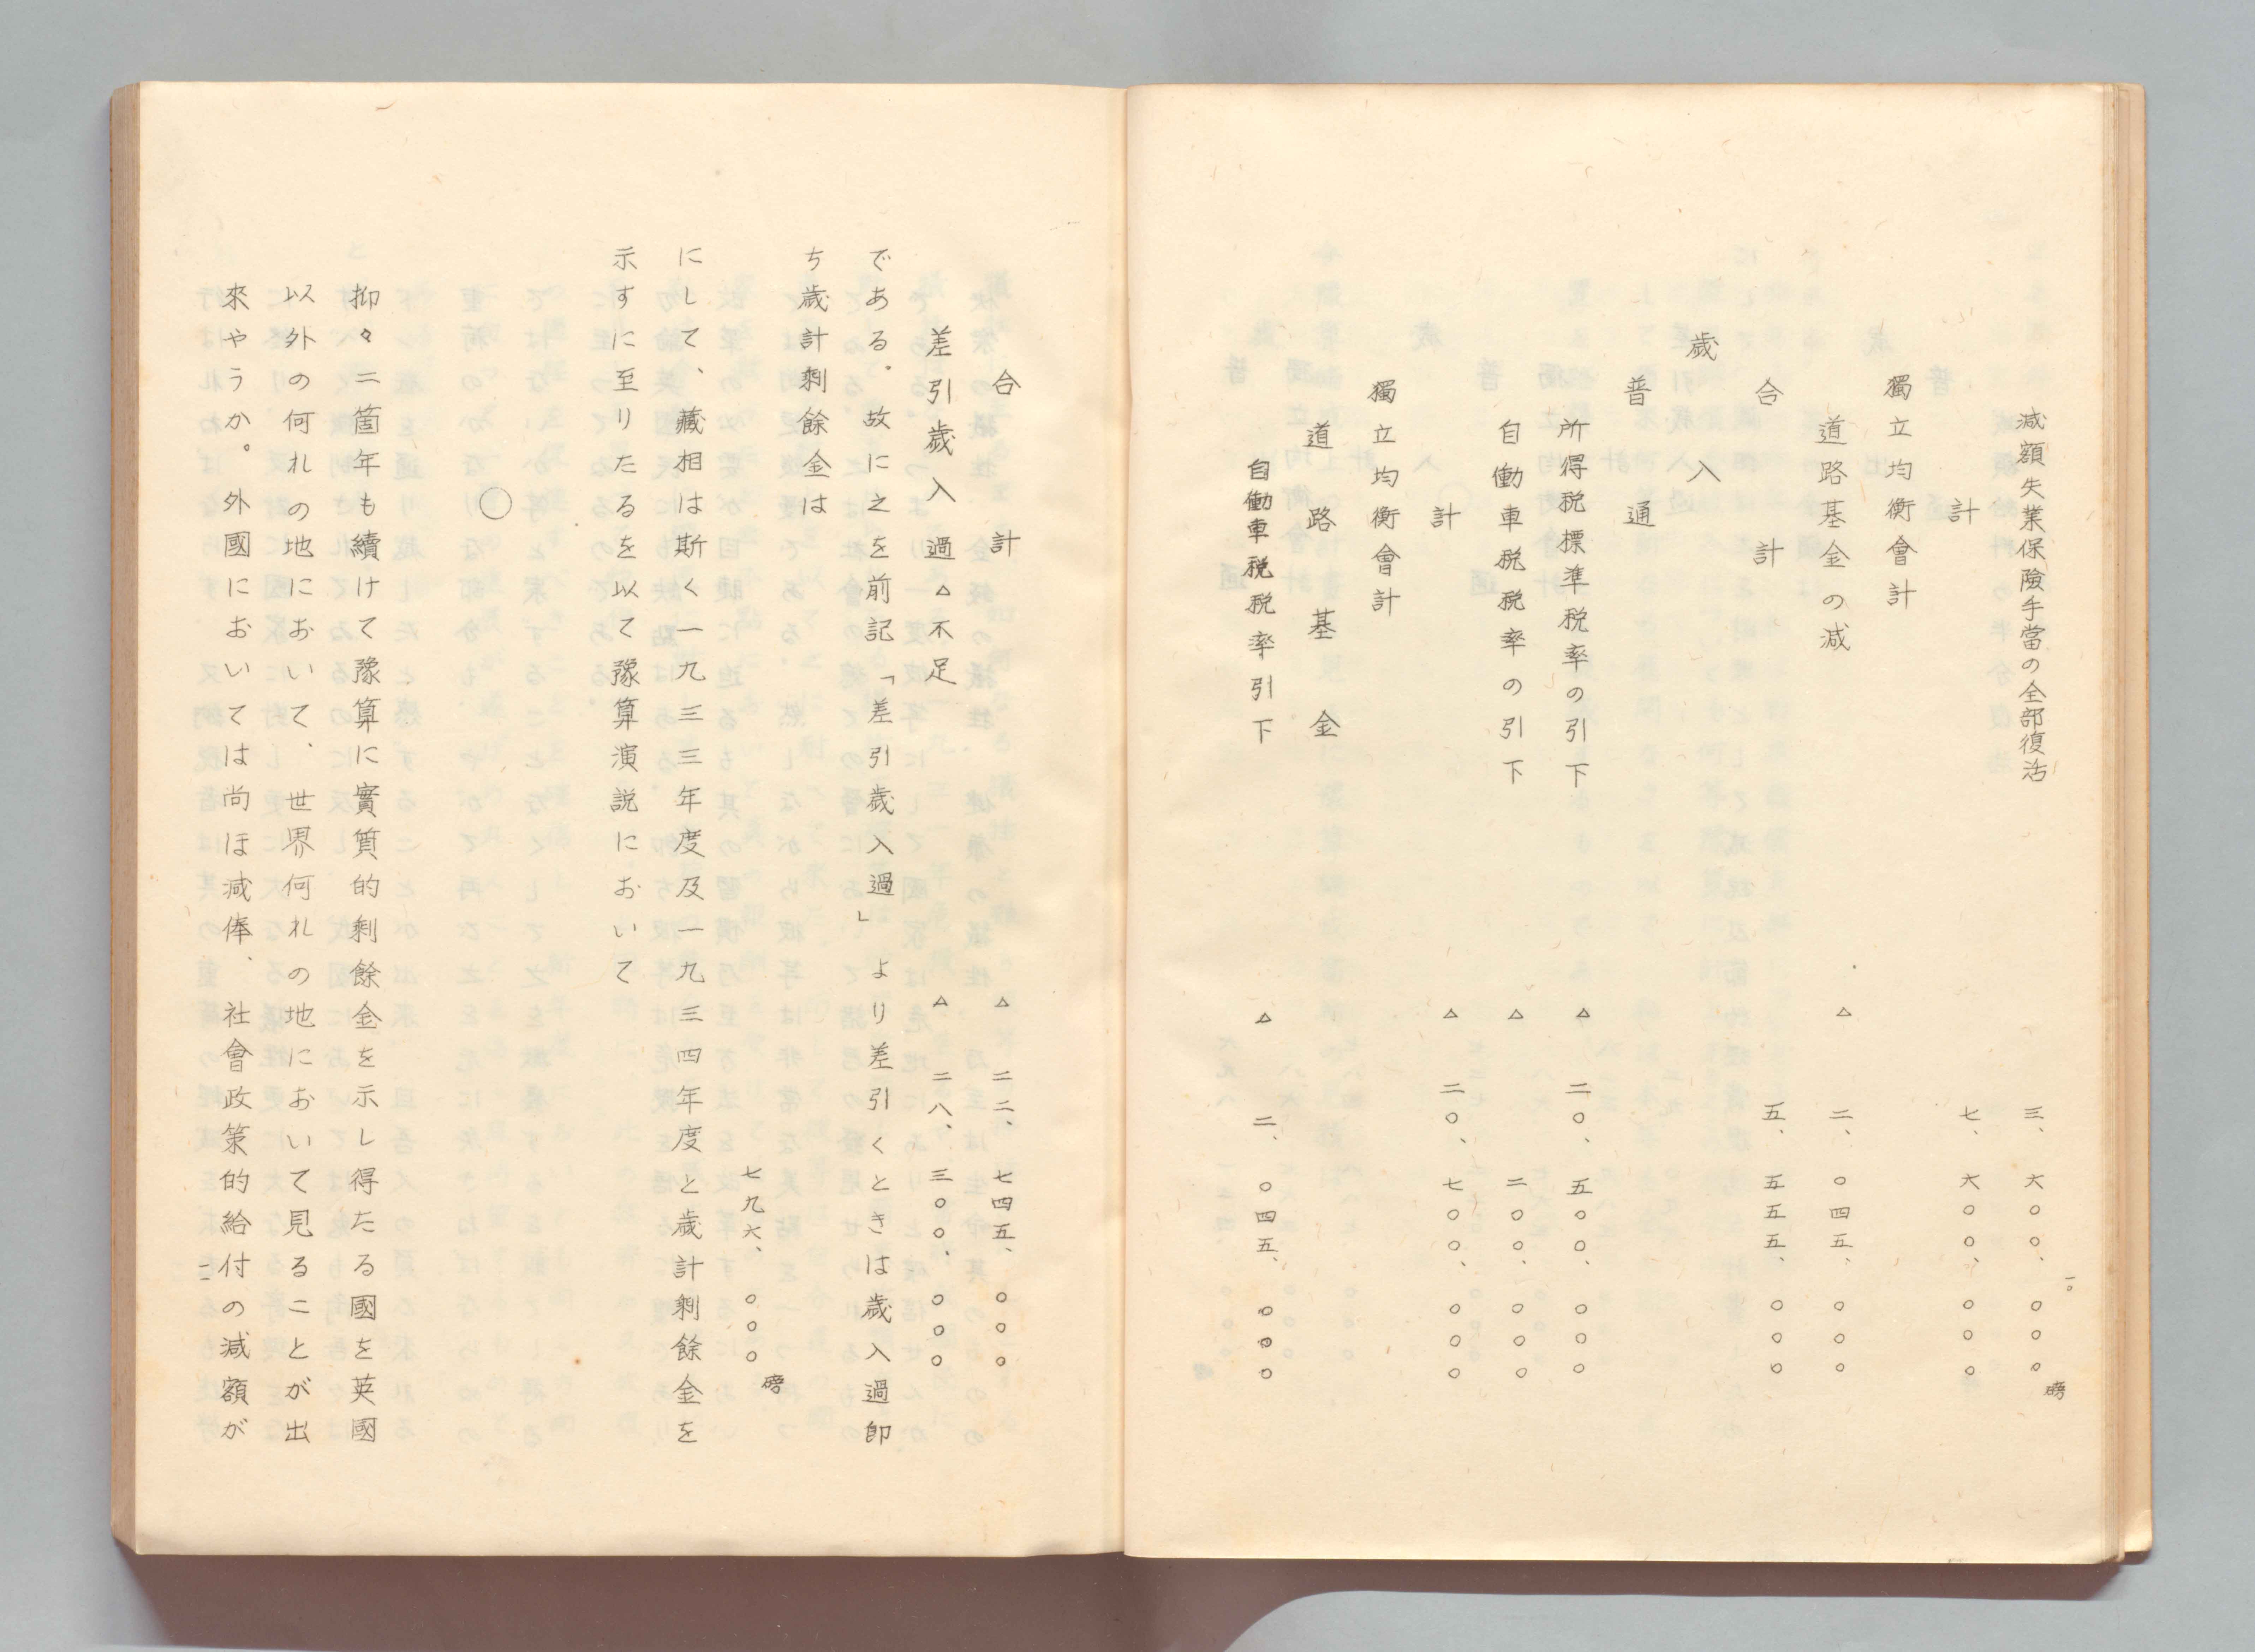 減額失業保険手當の全部復活 三、六〇〇、〇〇〇磅
計 七、六〇〇、〇〇〇
獨立均衡會計
道路基金の減 △ 二、〇四五、〇〇〇
合計 五、五五五、〇〇〇
歳入
普通
所得税標準税率の引下 △ 二〇、五〇〇、〇〇〇
自働車税税率の引下 △ 二〇〇、〇〇〇
計 △ 二〇、七〇〇、〇〇〇
獨立均衡會計
道路基金
自働車税税率引下 △ 二、〇四五、〇〇〇
一〇
合計 △ 二二、七四五、〇〇〇
差引歳入過△不足 △ 二八、三〇〇、〇〇〇
である。故に之を前記「差引歳入過」より差引くときは歳入過卽
ち歳計剰餘金は
七九六、〇〇〇磅
にして、藏相は斯く一九三三年度及一九三四年度と歳計剰餘金を
示すに至りたるを以て豫算演説において
〇
抑々二箇年も續けて豫算に實質的剰餘金を示し得たる國を英國
以外の何れの地において、世界何れの地において見ることが出
來やうか。外國においては尚ほ減俸、社會政策的給付の減額が
一一